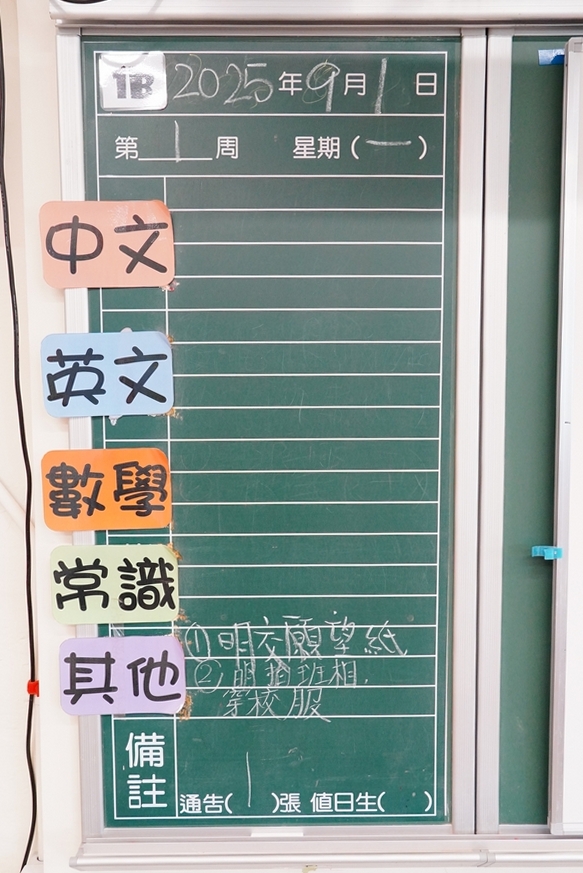 1B 2025年9月1日
第1周 星期(一)
中文
英文
數學
常識
其他
①明交願望紙
②明拍班相,
穿校服
備註
通告(1)張 值日生( )